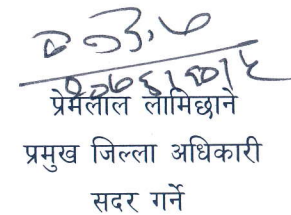 प्रेमलाल लामिछाने
प्रमुख जिल्ला अधिकारी
सदर गर्ने